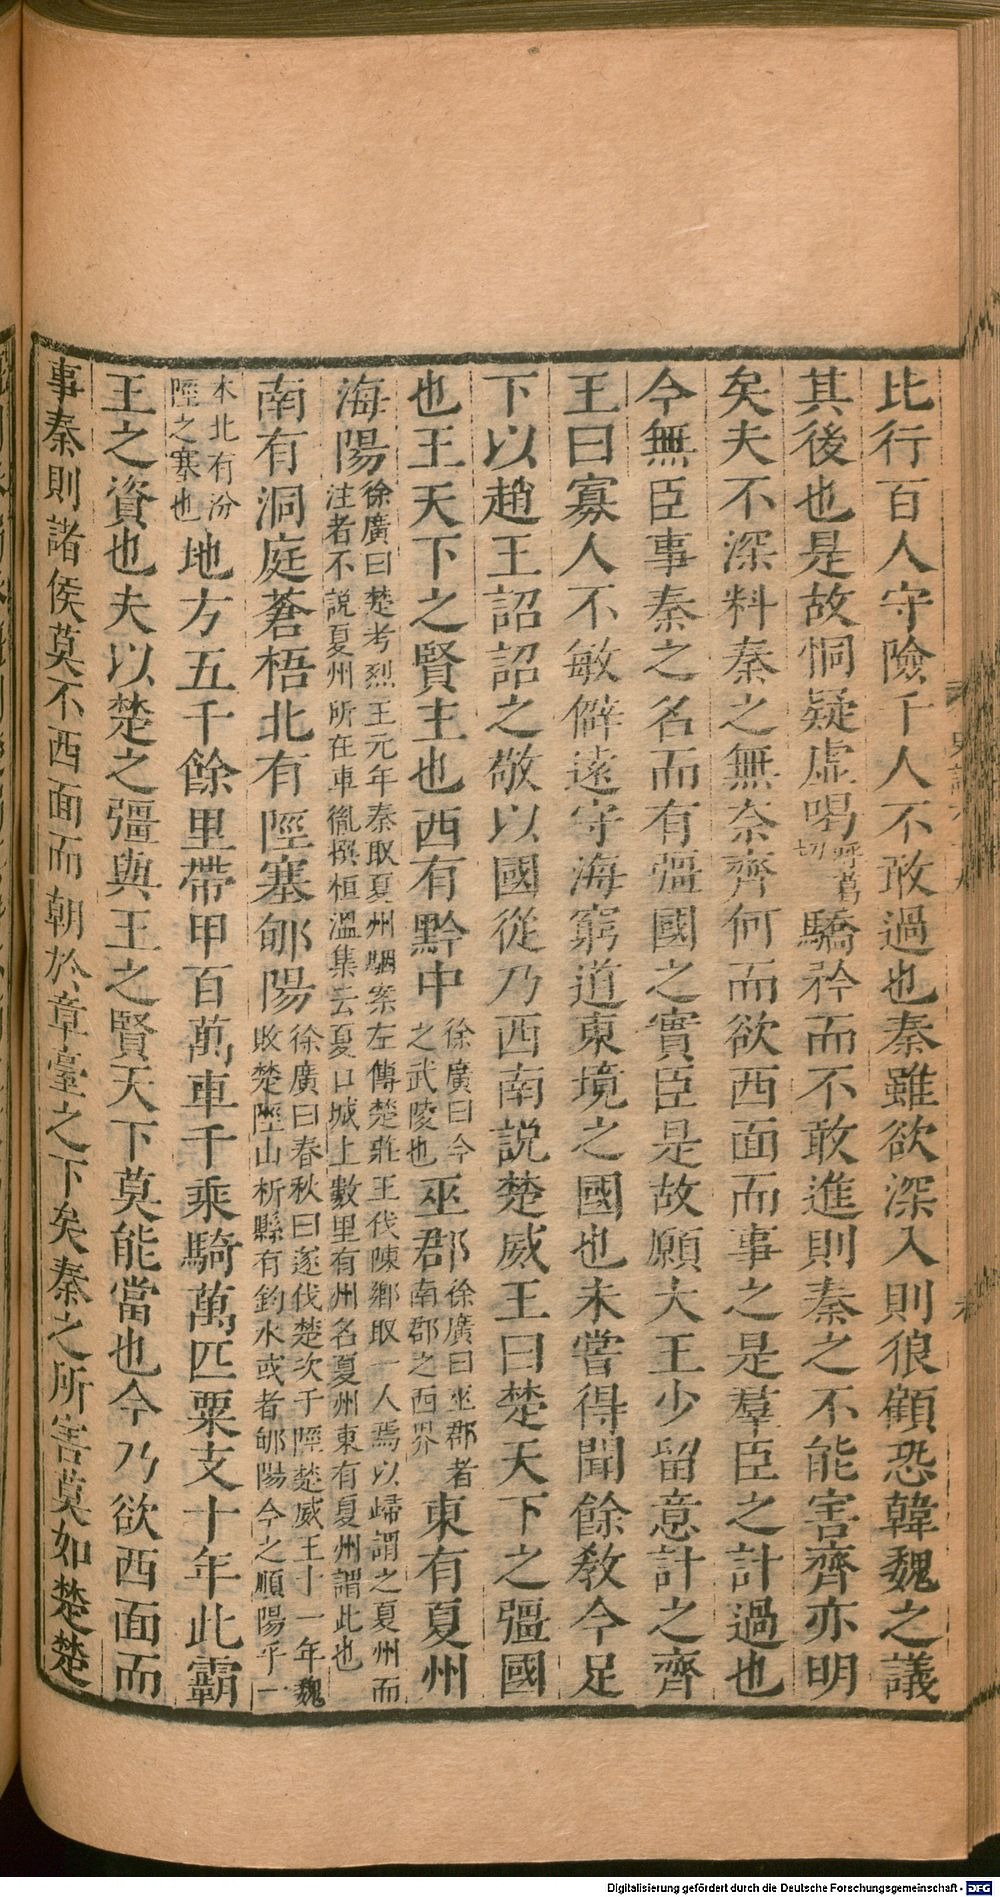 比行百人守險千人不敢過也秦雖欲深入則狼顧恐韓魏之議
其後也是故恫疑虛喝呼葛切驕矜而不敢進則秦之不能害齊亦明
矣夫不深料秦之無奈齊何而欲西面而事之是羣臣之計過也
今無臣事秦之名而有彊國之實臣是故願大王少留意計之齊
王曰寡人不敏僻遠守海窮道東境之國也未嘗得聞餘敎今足
下以趙王詔詔之敬以國從乃西南說楚威王曰楚天下之彊國
也王天下之賢主也西有黔中徐廣曰今之武陵也巫郡徐廣曰巫郡者南郡之西界東有夏州
海陽徐廣曰楚考烈王元年秦取夏州駰案左傳楚莊王伐陳鄉取一人焉以歸謂之夏州而注者不說夏州所在車胤撰桓溫集云夏口城上數里有州名夏州東有夏州謂此也
南有洞庭蒼梧北有陘塞郇陽徐廣曰春秋曰遂伐楚次于陘楚威王十一年魏敗楚陘山析縣有鈞水或者郇陽今之順陽乎一
本北有汾陘之塞也地方五千餘里帶甲百萬車千乘騎萬匹粟支十年此霸
王之資也夫以楚之彊與王之賢天下莫能當也今乃欲西面而
事秦則諸侯莫不西面而朝於章臺之下矣秦之所害莫如楚楚
Digitalisierung gefördert durch die Deutsche Forschungsgemeinschaft - DFG